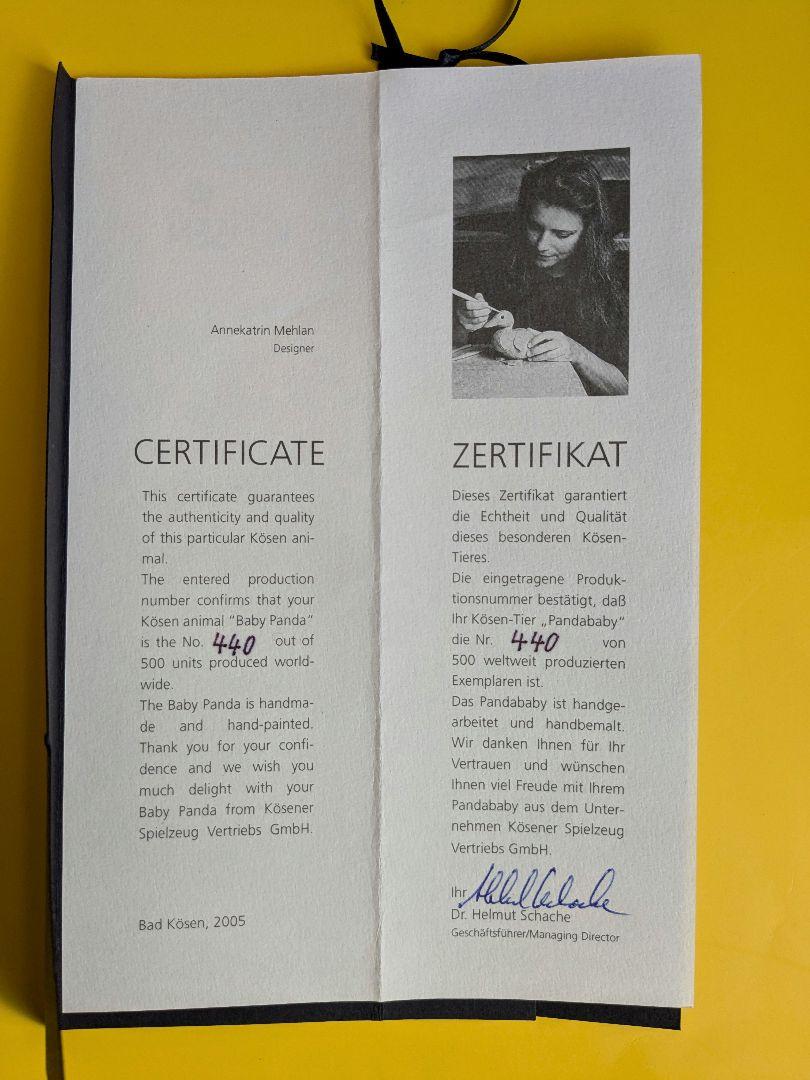 Annekatrin Mehlan
Designer
CERTIFICATE
This certificate guarantees
the authenticity and quality
of this particular Kösen ani-
mal.
The entered production
number confirms that your
Kösen animal "Baby Panda"
is the No. 440 out of
500 units produced world-
wide.
The Baby Panda is handma-
de and hand-painted.
Thank you for your confi-
dence and we wish you
much delight with your
Baby Panda from Kösener
Spielzeug Vertriebs GmbH.
Bad Kösen, 2005
ZERTIFIKAT
Dieses Zertifikat garantiert
die Echtheit und Qualität
dieses besonderen Kösen-
Tieres.
Die eingetragene Produk-
tionsnummer bestätigt, daß
Ihr Kösen-Tier „Pandababy"
die Nr. 440 von
500 weltweit produzierten
Exemplaren ist.
Das Pandababy ist handge-
arbeitet und handbemalt.
Wir danken Ihnen für Ihr
Vertrauen und wünschen
Ihnen viel Freude mit Ihrem
Pandababy aus dem Unter-
nehmen Kösener Spielzeug
Vertriebs GmbH.
Ihr
Dr. Helmut Schache
Geschäftsführer/Managing Director